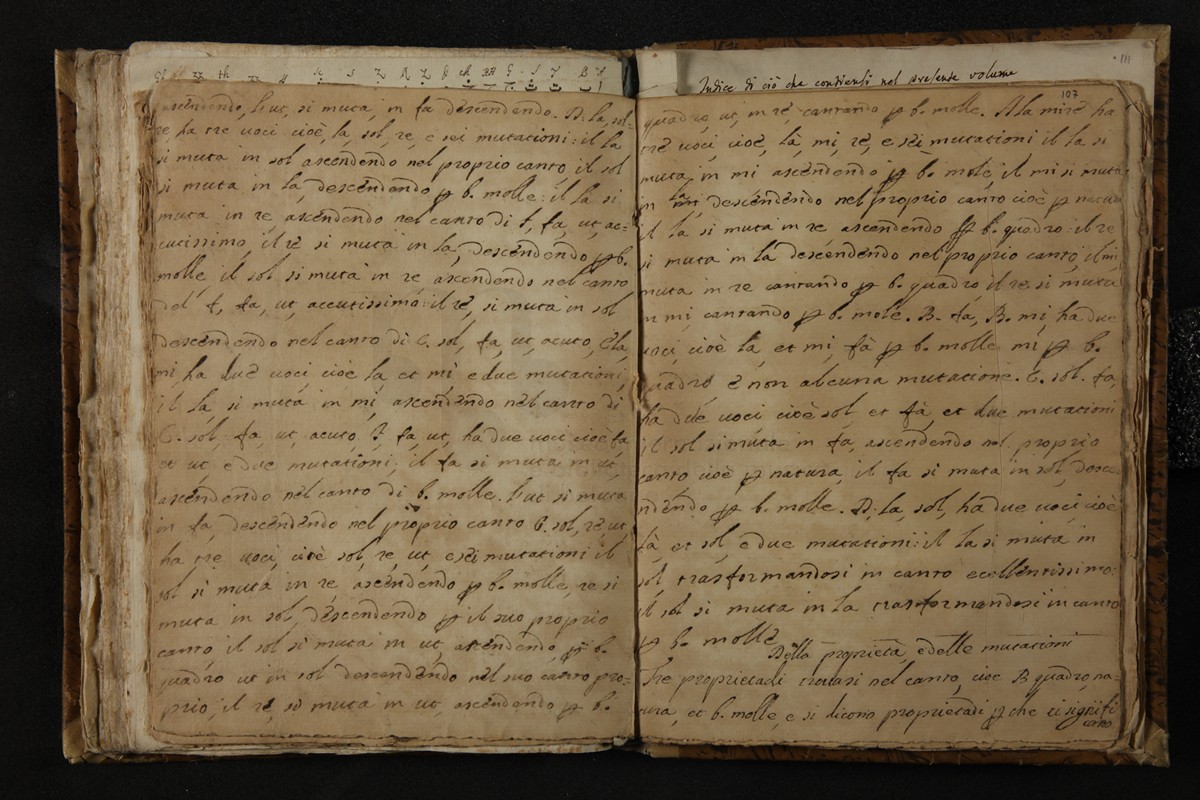 ascendendo, l'ut, si muta, in fa descendendo. D. la, sol=
re, ha tre voci cioè, la, sol, re, e sei mutationi: il la
si muta in sol ascendendo nel proprio canto il sol
si muta in la, descendendo p b. molle: il la si
muta in re, ascendendo nel canto di f, fa, ut, ac=
cutissimo, il re si muta in la, descendendo p b.
molle il sol si muta in re ascendendo nel canto
del f, fa, ut, accutissimo: il re, si muta in sol
descendendo nel canto di C. sol, fa, ut, acuto, Ela,
mi, ha due voci cioè la, et mi, e due mutationi,
il la, si muta in mi, ascendendo nel canto di
C. sol, fa, ut, acuto. F, fa, ut, ha due voci cioè fa
et ut, e due mutationi, il fa si muta in ut,
ascendendo nel canto di b. molle. l'ut si muta
in fa, descendendo nel proprio canto G. sol, re, ut
ha tre voci, cioè sol, re, ut, e sei mutationi il
sol si muta in re ascendendo p b. molle, re si
muta in sol, descendendo p il suo proprio
canto, il sol si muta in ut, ascendendo p b.
quadro ut in sol descendendo nel suo canto pro=
prio, il re, si muta in ut, ascendendo p b.
Indice di ciò che contiensi nel presente volume
111
107
quadro, ut, in re, cantando p b. molle. A la mi re ha
tre voci, cioè, là, mi, re, e sei mutationi il la si
muta in mi ascendendo p b. mole, il mi si muta
in la, descendendo nel proprio canto cioè p natura
il la si muta in re ascendendo p b. quadro: il re
si muta in la descendendo nel proprio canto, il mi
muta in re cantando p b. quadro il re si muta
in mi, cantando p b. mole. B. fa, B. mi, ha due
voci cioè fa, et mi, fà p b. molle mi p b.
quadro e non alcuna mutatione. C. sol. fa,
ha due voci cioè sol, et fà, et due mutationi
il sol si muta in fa, ascendendo nel proprio
canto cioè p natura, il fa si muta in sol, desce
ndendo p b. molle. D. la, sol, ha due voci cioè
là et sol e due mutationi: il la si muta in
sol trasformandosi in canto ecellentissimo:
il sol si muta in la trasformandosi in canto
p b. molle.
Della proprietà, e delle mutationi
Tre proprietadi trovasi nel canto, cioe B quadro, na=
tura, et b. molle, e si dicono proprietadi p che ci signifi
cano